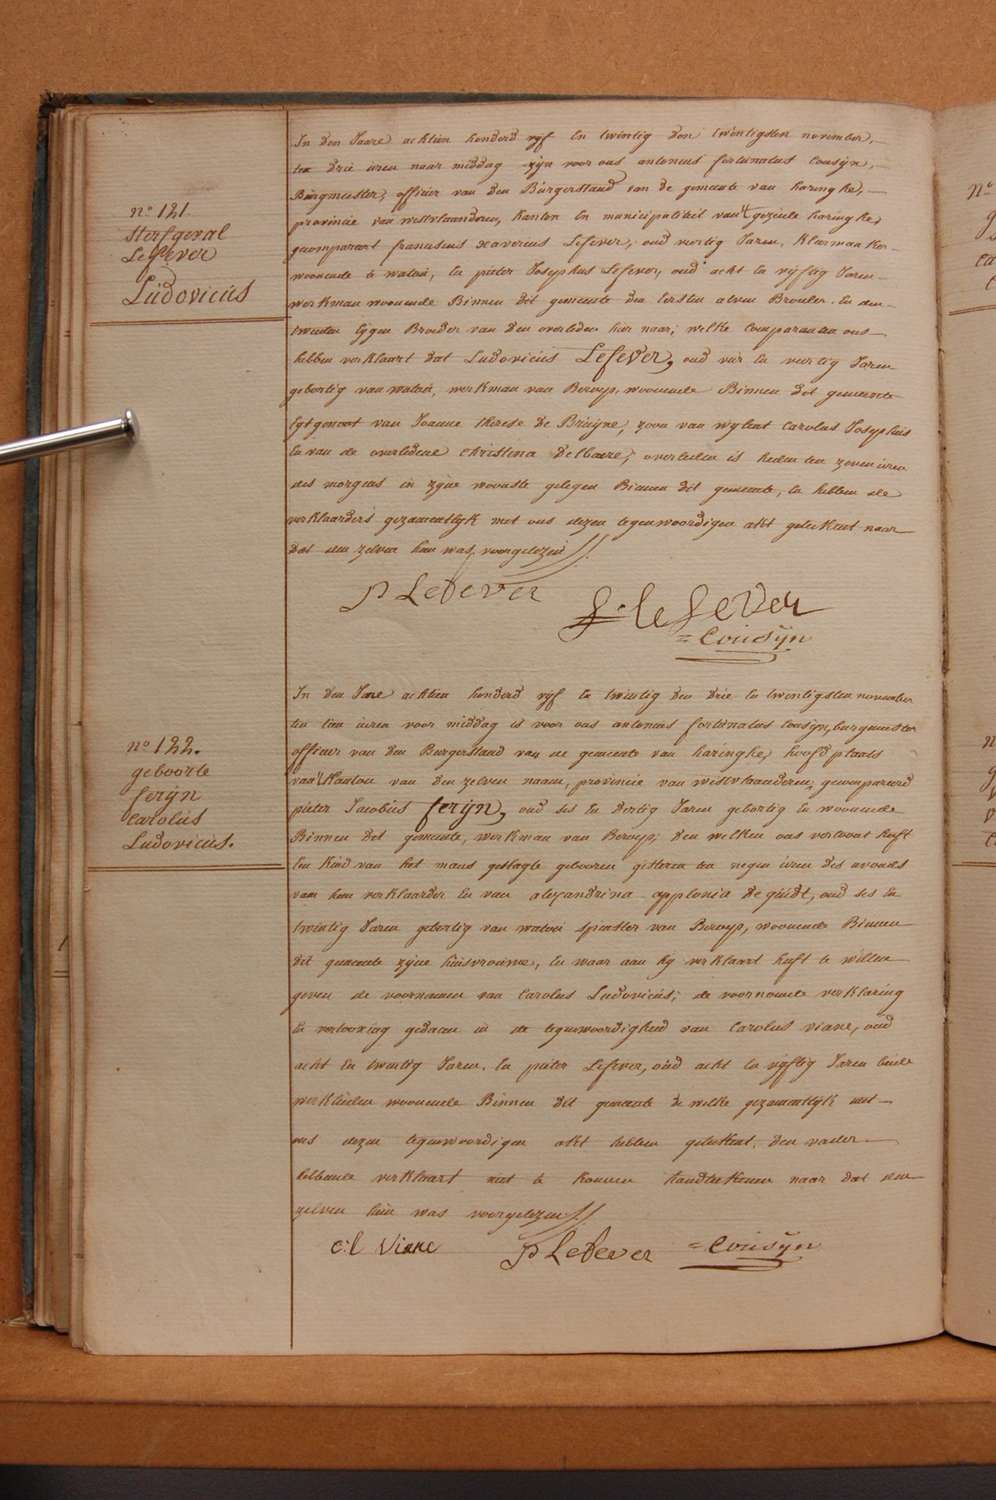 n.º 121.
sterfgeval
Lefever
Ludovicus
In den Jaare achtien honderd vijf En twintig den twintigsten november,
ten drie uren naar middag zijn voor ons antonius fortunatus Cousijn,
Burgmeester, officier van den Burgerstand van de gemeente van haringhe,
provincie van westvlaanderen, kanton En municipaliteit van gezeide haringhe,
gecompareert franciscus xaverius Lefever, oud viertig Jaren, Klasmaaker
woonende te watou, En pieter Josephus Lefever, oud acht En vijftig Jaren
werkman woonende Binnen dit gemeente den Eersten alven Broeder En den
tweeden Eijgen Broeder van den overleden hier naar, welke Comparanten ons
hebben verklaart dat Ludovicus Lefever, oud vier En veertig Jaren
gebortig van watou, werkman van Beroep, woonende Binnen dit gemeente
Egtgenoot van Joanne therese De Bruijne, zoon van wylent Carolus Josephus
En van de overledene Christina Delbaere, overleden is heden ten zeven uren
des morgens in zijne woonste gelegen Binnen dit gemeente, En hebben de
verklaarders gezamentlijk met ons dezen tegenwoordigen akt geteekent naar
dat den zelven hun was voorgelezen
P Lefever
f: lefever
= Cousijn
n.º 122.
geboorte
ferijn
Carolus
Ludovicus.
In den Jare achtien honderd vijf En twintig den drie En twintigsten november
ten tien uren voor middag is voor ons antonius fortunatus Cousijn, burgemeester
officier van den Burgerstand van de gemeente van haringhe, hoofdplaats
van 't kanton van den zelven naam, provincie van westvlaanderen, gecompareerd
pieter Jacobus ferijn, oud ses En dertig Jaren gebortig En woonende
Binnen dit gemeente, werkman van Beroep, den welken ons vertoont heeft
Een Kind van het mans geslagte gebooren gisteren ten negen uren des avonds
van hem verklaarder En van alexandrina applonia De quidt, oud ses En
twintig Jaren gebortig van watou spinster van Beroep, woonende Binnen
dit gemeente zijne huisvrouwe, En waar aan hij verklaart heeft te willen
geven de voornamen van Carolus Ludovicus; de voornoemde verklaring
En vertooning gedaan in de tegenwoordigheid van Carolus viane, oud
acht En twintig Jaren. En pieter Lefever, oud acht En vijftig Jaren beide
werklieden woonende Binnen dit gemeente de welke gezamentlijk met
ons dezen tegenwoordigen akt hebben geteekent, den vader
hebbende verklaart niet te konnen handteekenen naar dat den
zelven hun was voorgelezen
C:l Viane
P Lefever
= Cousijn